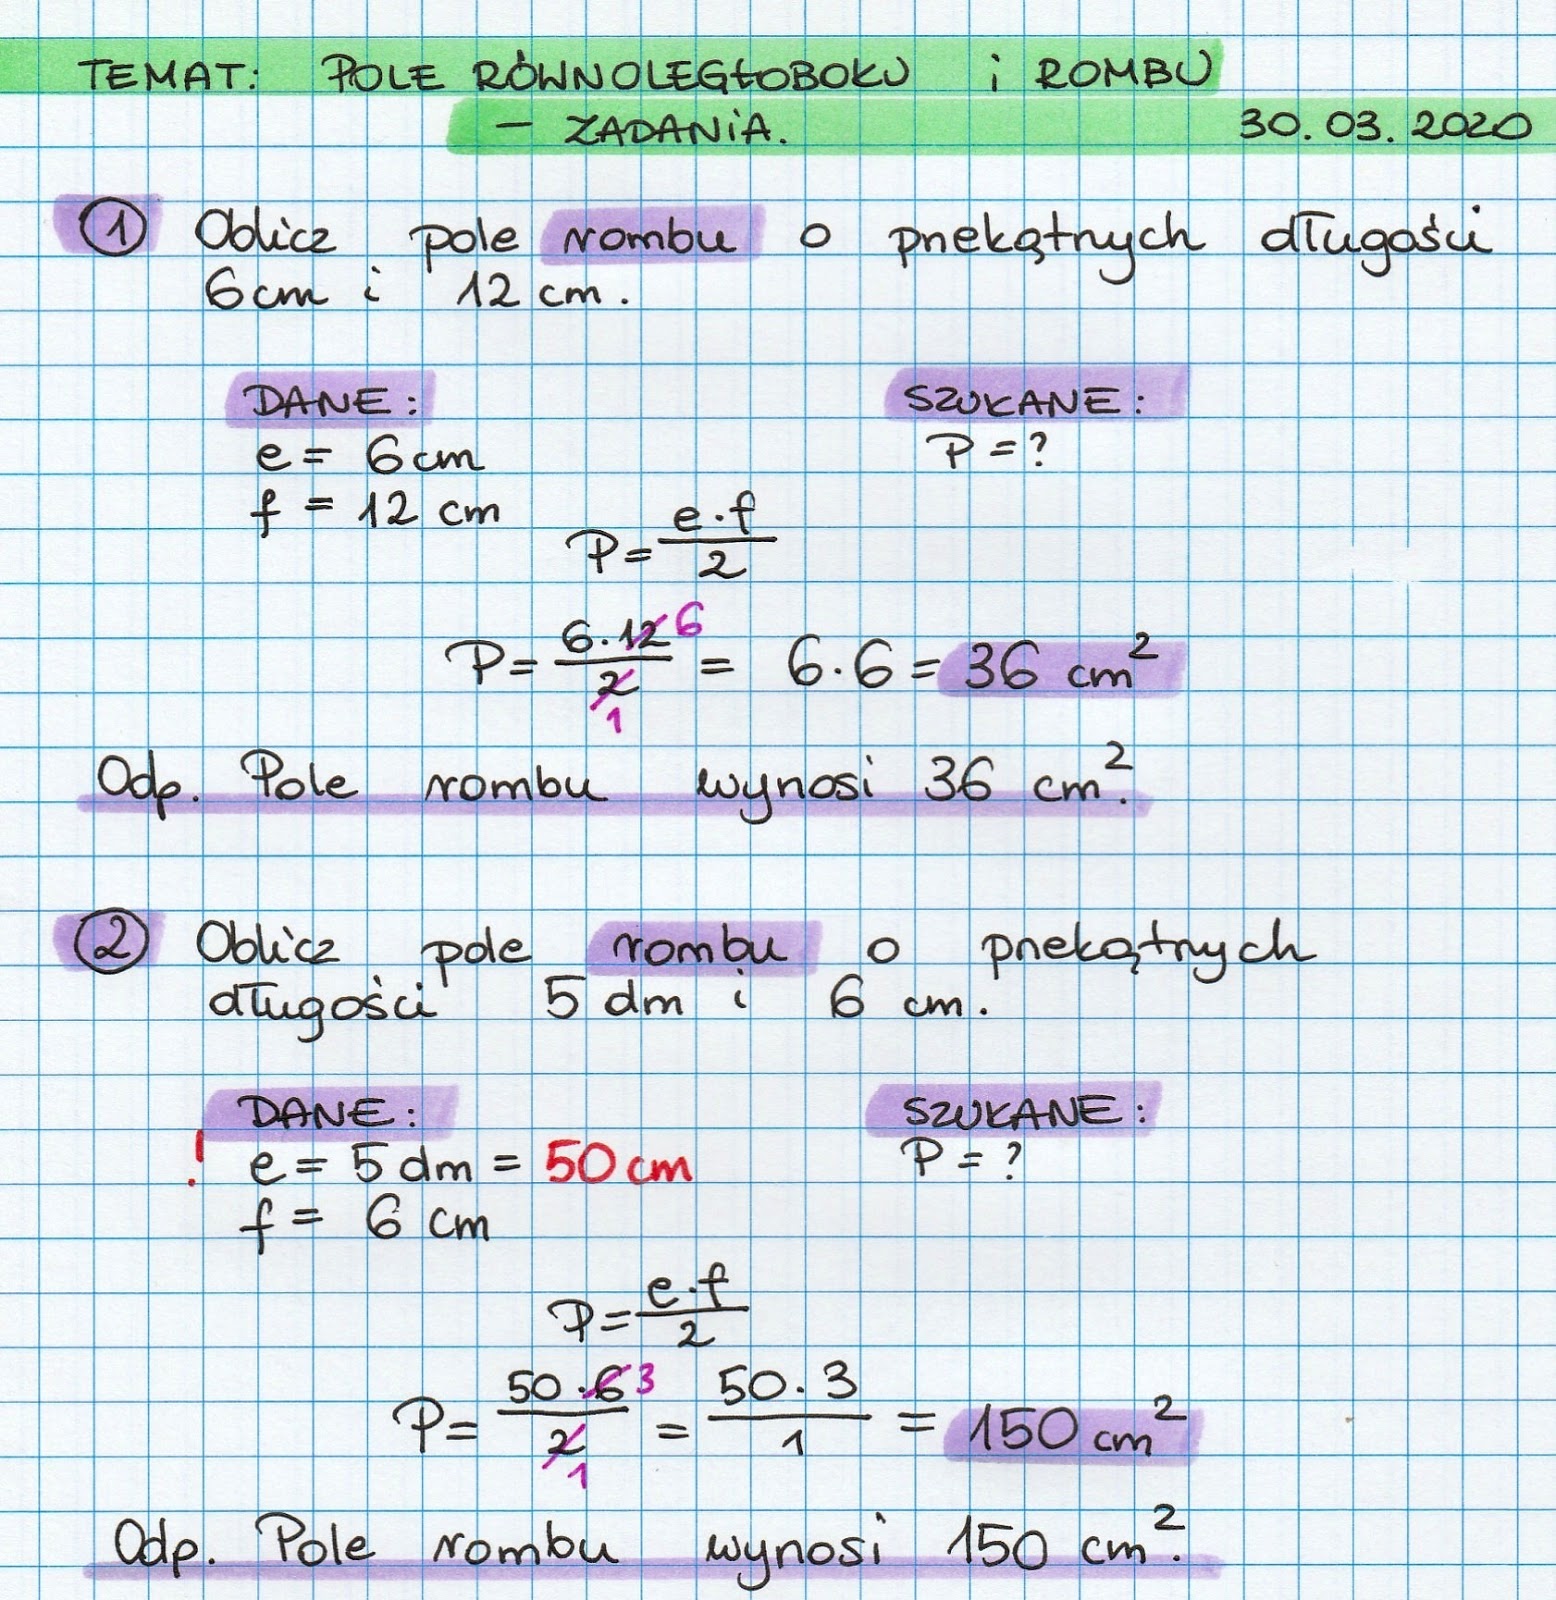 TEMAT: POLE RÓWNOLEGŁOBOKU i ROMBU
– ZADANiA. 30.03.2020
1 Oblicz pole rombu o przekątnych długości
6cm i 12 cm.
DANE: SZUKANE:
e = 6cm P = ?
f = 12 cm
P = e·f/2
P = 6·12 6/2 1 = 6·6 = 36 cm²
Odp. Pole rombu wynosi 36 cm².
2 Oblicz pole rombu o przekątnych
długości 5 dm i 6 cm.
DANE: SZUKANE:
! e = 5 dm = 50 cm P = ?
f = 6 cm
P = e·f/2
P = 50·6 3/2 1 = 50·3/1 = 150 cm²
Odp. Pole rombu wynosi 150 cm².